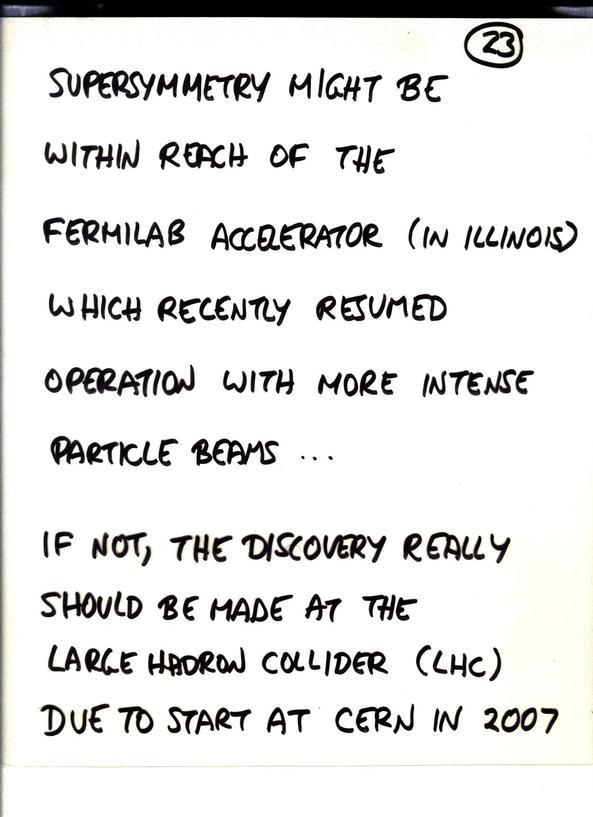 23
SUPERSYMMETRY MIGHT BE
WITHIN REACH OF THE
FERMILAB ACCELERATOR (IN ILLINOIS)
WHICH RECENTLY RESUMED
OPERATION WITH MORE INTENSE
PARTICLE BEAMS ...
IF NOT, THE DISCOVERY REALLY
SHOULD BE MADE AT THE
LARGE HADRON COLLIDER (LHC)
DUE TO START AT CERN IN 2007